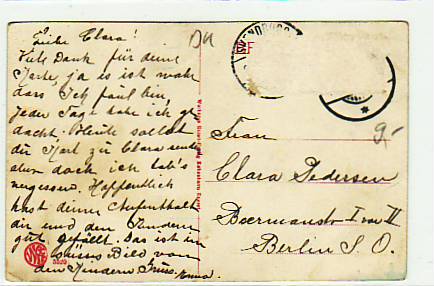 Liebe Clara!
Viele Dank für deine
Karte, ja es ist wahr
dass Ich faul bin,
jeder Tage habe ich ge
dacht. Heute sollst
du Karl zu Clara sende
aber doch ich hab's
vergessen. Hoffentlich
hast deiner Aufenthalt
dir und den Kindern
gut gefällt. Das ist ein
süsses Bild von
den Kindern
DM
SVENDBORG
Frau
Clara Pedersen
Beermannstr I von III
Berlin S. O.
9.-
5529